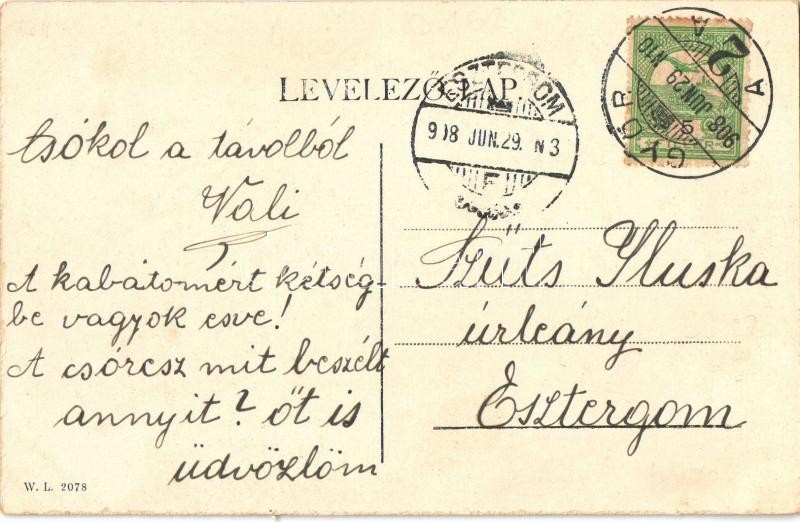 LEVELEZŐ-LAP.
ESZTERGOM
908 JUN. 29. N 3
F
GYŐR
908 JUN 29
2
A
Csókol a távolból
Vali
A kabátomért kétség-
be vagyok esve!
A csóresz mit beszélt
annyit? őt is
üdvözlöm
Szűts Iluska
úrleány
Esztergom
W. L. 2078